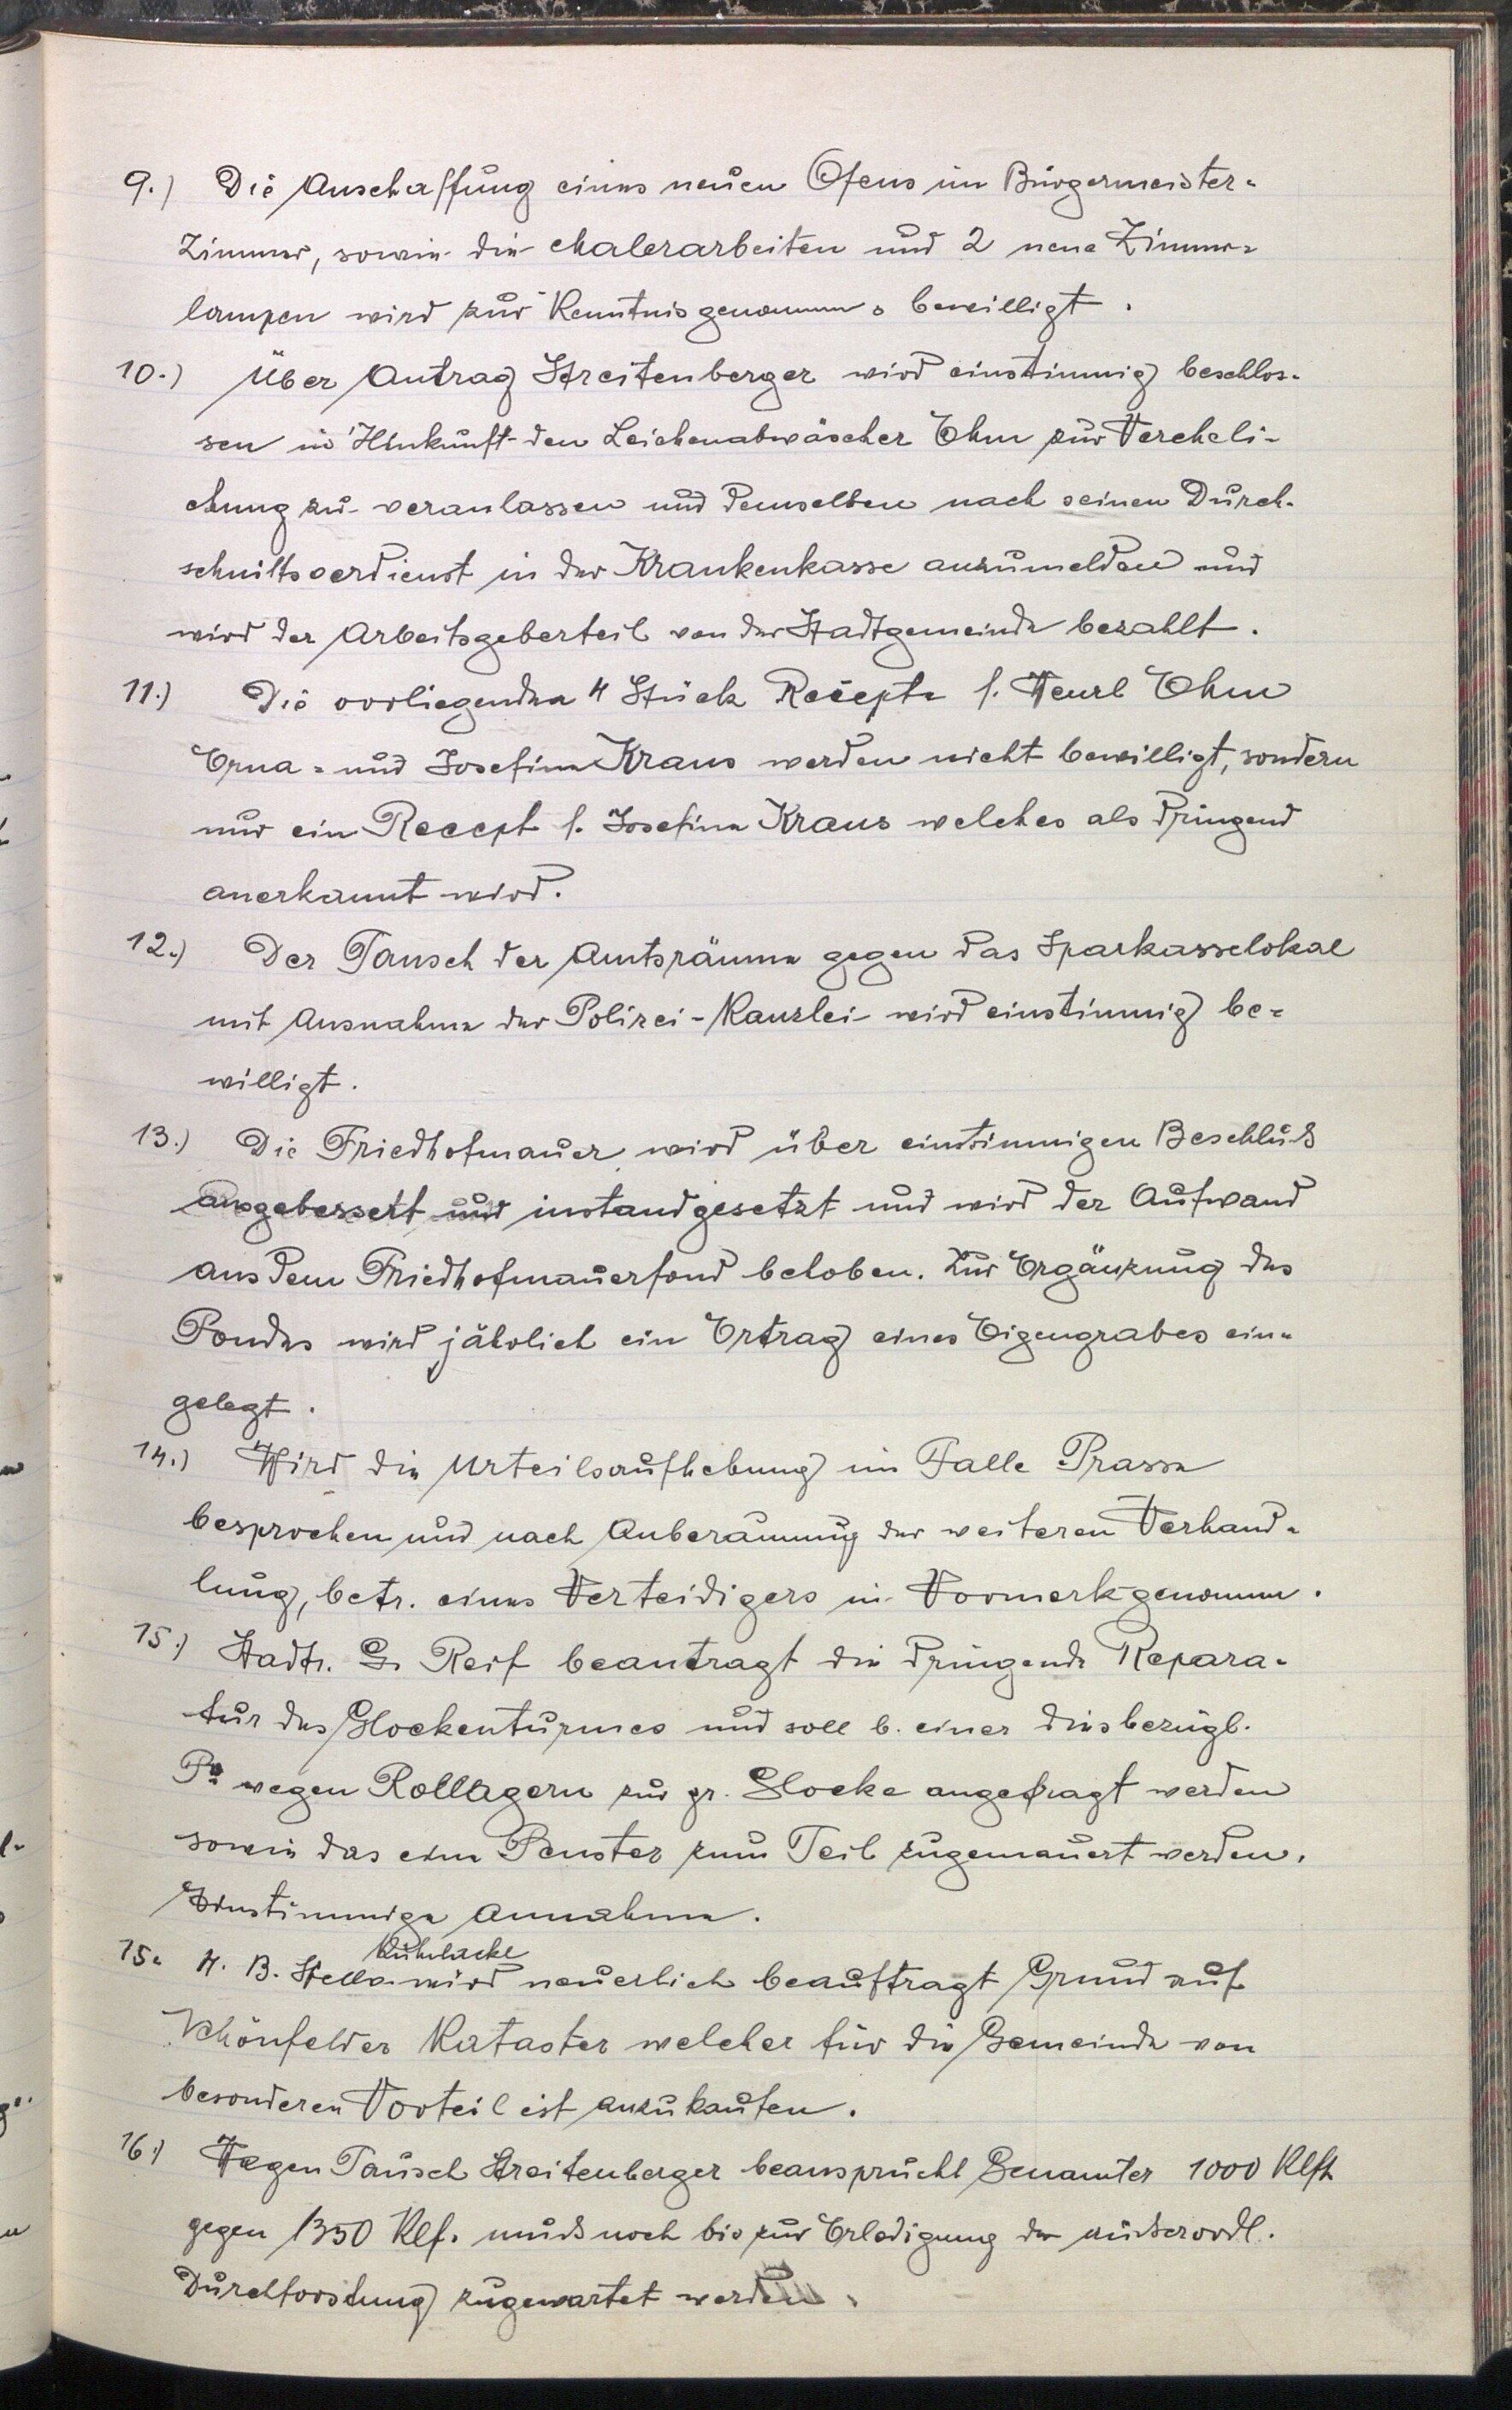 9.) Die Anschaffung eines neuen Ofens im Bürgermeister-
Zimmer, sowie die Malerarbeiten und 2 neue Zimmer-
lampen wird zur Kenntnis genommen u. bewilligt.
10.) Über Antrag Streitenberger wird einstimmig beschlos-
sen in Hinkunft den Leichenabwäscher Ehm zur Vereheli-
chung zu veranlassen und demselben nach seinen Durch-
schnittsverdienst in der Krankenkasse anzumelden und
wird der Arbeitsgeberteil von der Stadtgemeinde bezahlt.
11.) Die vorliegenden 4 Stück Recepte f. Ehm
Erna- und Josefine Kraus werden nicht bewilligt, sondern
nur ein Recept f. Josefine Kraus welches als dringend
anerkannt wird.
12.) Der Tausch der Amtsräume gegen das Sparkasselokal
mit Ausnahme der Polizei-Kanzlei wird einstimmig be-
willigt.
13.) Die Friedhofmauer wird über einstimmigen Beschluß
ausgebessert und instandgesetzt und wird der Aufwand
aus dem Friedhofmauerfond behoben. Zur Ergänzung des
Fondes wird jährlich ein Ertrag eines Eigengrabes ein-
gelegt.
14.) Wird die Urteilsaufhebung im Falle Prasse
besprochen und nach Anberaumung der weiteren Verhand-
lung, betr. eines Verteidigers in Vormerk genommen.
15.) Stadtr. G. Reif beantragt die dringende Repara-
tur des Glockenturmes und soll b. einer diesbezügl.
Fa wegen Rollagern zur gr. Glocke angefragt werden
sowie das eine Fenster zum Teil zugemauert werden.
Einstimmige Annahme.
Kuhlacke
15. H. B. Stella wird neuerlich beauftragt Grund auf
Schönfelder Kataster welcher für die Gemeinde von
besonderen Vorteil ist anzukaufen.
16.) Wegen Tausch Streitenberger beansprucht Genannter 1000 Klft
gegen 1350 Klf. muß noch bis zur Erledigung der außerordl.
Durchforstung zugewartet werden.